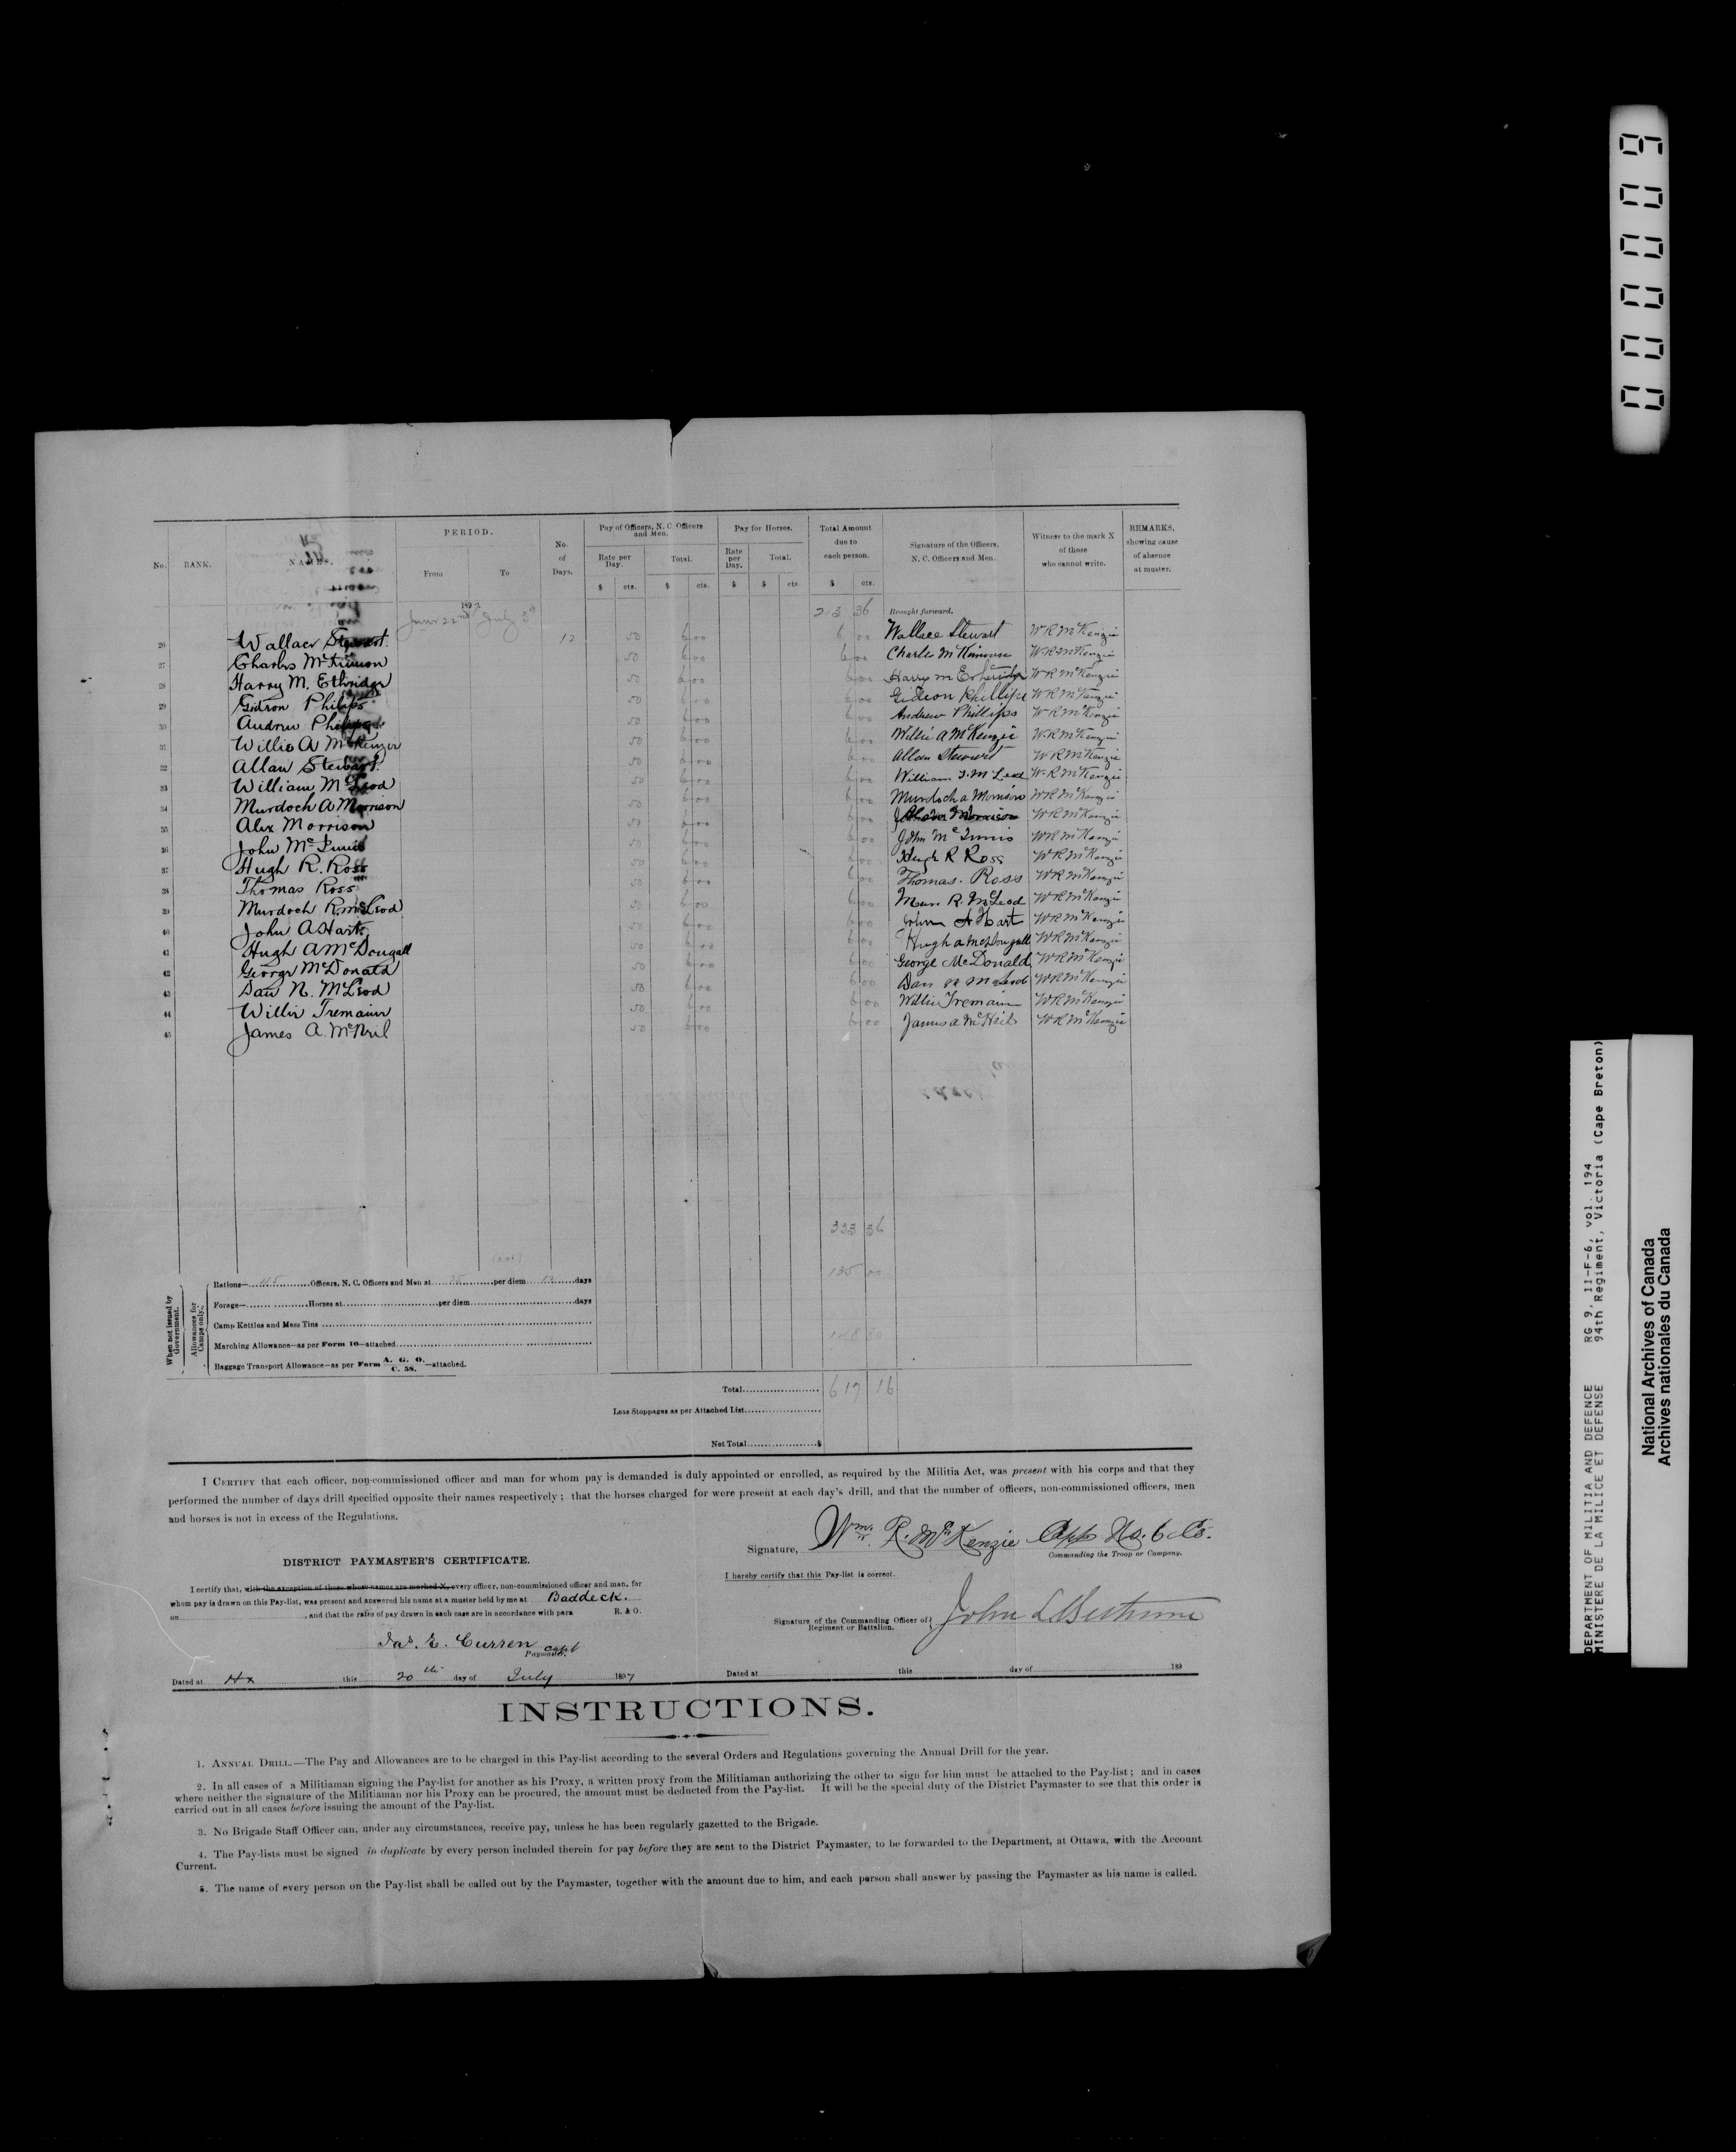 000009
No. RANK. NAMES. PERIOD. From To No. of Days. Pay of Officers, N. C. Officers and Men. Rate per Day. $ cts. Total. $ cts. Pay for Horses. Rate per Day. $ Total. $ cts. Total Amount due to each person. $ cts. Signature of the Officers, N. C. Officers and Men. Witness to the mark X of those who cannot write. REMARKS, showing cause of absence at muster.
1897. June 22nd July 3rd 213 36 Brought forward.
26 Wallace Stewart. 12 50 6 00 6 00 Wallace Stewart W R McKenzie
27 Charles McKinnon 50 6 00 6 00 Charles McKinnon W R McKenzie
28 Harry M. Ethridge 50 6 00 6 00 Harry M Etheridge W R McKenzie
29 Gideon Philips 50 6 00 6 00 Gideon Phillips W R McKenzie
30 Andrew Philips 50 6 00 6 00 Andrew Phillips W R McKenzie
31 Willie A McKenzie 50 6 00 6 00 Willie A McKenzie W R McKenzie
32 Allan Stewart. 50 6 00 6 00 Allan Stewart W R McKenzie
33 William McLeod 50 6 00 6 00 William J. McLeod W R McKenzie
34 Murdoch A Morrison 50 6 00 6 00 Murdoch A Morrison W R McKenzie
35 Alex Morrison 50 6 00 6 00 Morrison W R McKenzie
36 John McInnis 50 6 00 6 00 John McInnis W R McKenzie
37 Hugh R. Ross 50 6 00 6 00 Hugh R Ross W R McKenzie
38 Thomas Ross 50 6 00 6 00 Thomas. Ross W R McKenzie
39 Murdoch R. McLeod 50 6 00 6 00 R. McLeod W R McKenzie
40 John A Hart 50 6 00 6 00 John A Hart W R McKenzie
41 Hugh A McDougall 50 6 00 6 00 Hugh A McDougall W R McKenzie
42 George McDonald 50 6 00 6 00 George McDonald W R McKenzie
43 Dan N. McLeod 50 6 00 6 00 Dan N McLeod W R McKenzie
44 Willie Tremain 50 6 00 6 00 Willie Tremain W R McKenzie
45 James A. McNeil 50 6 00 6 00 James A McNeil W R McKenzie
333 36
When not issued by Government.
Allowances for Camps only.
Rations— 45 Officers, N. C. Officers and Men at 25 per diem 12 days 135 00
Forage— Horses at per diem days
Camp Kettles and Mess Tins
Marching Allowance—as per Form 10—attached 148 80
Baggage Transport Allowance—as per Form A. G. O. C. 58. —attached.
Total 617 16
Less Stoppages as per Attached List
Net Total $
I CERTIFY that each officer, non-commissioned officer and man for whom pay is demanded is duly appointed or enrolled, as required by the Militia Act, was present with his corps and that they
performed the number of days drill specified opposite their names respectively; that the horses charged for were present at each day's drill, and that the number of officers, non-commissioned officers, men
and horses is not in excess of the Regulations.
Signature, Wm. R. McKenzie Capt No. 6 Co.
Commanding the Troop or Company.
DISTRICT PAYMASTER'S CERTIFICATE.
I certify that, with the exception of those whose names are marked X, every officer, non-commissioned officer and man, for
whom pay is drawn on this Pay-list, was present and answered his name at a muster held by me at Baddeck.
on , and that the rates of pay drawn in each case are in accordance with para R. & O.
Jas. E. Curren Capt
Paymaster.
Dated at Hx this 20th day of July 1897
I hereby certify that this Pay-list is correct.
Signature of the Commanding Officer of Regiment or Battalion. John L Bethune
Dated at this day of 189
INSTRUCTIONS.
1. ANNUAL DRILL.—The Pay and Allowances are to be charged in this Pay-list according to the several Orders and Regulations governing the Annual Drill for the year.
2. In all cases of a Militiaman signing the Pay-list for another as his Proxy, a written proxy from the Militiaman authorizing the other to sign for him must be attached to the Pay-list; and in cases
where neither the signature of the Militiaman nor his Proxy can be procured, the amount must be deducted from the Pay-list. It will be the special duty of the District Paymaster to see that this order is
carried out in all cases before issuing the amount of the Pay-list.
3. No Brigade Staff Officer can, under any circumstances, receive pay, unless he has been regularly gazetted to the Brigade.
4. The Pay-lists must be signed in duplicate by every person included therein for pay before they are sent to the District Paymaster, to be forwarded to the Department, at Ottawa, with the Account
Current.
5. The name of every person on the Pay-list shall be called out by the Paymaster, together with the amount due to him, and each person shall answer by passing the Paymaster as his name is called.
DEPARTMENT OF MILITIA AND DEFENCE RG 9, II-F-6, vol. 194
MINISTERE DE LA MILICE ET DEFENSE 94th Regiment, Victoria (Cape Breton)
National Archives of Canada
Archives nationales du Canada